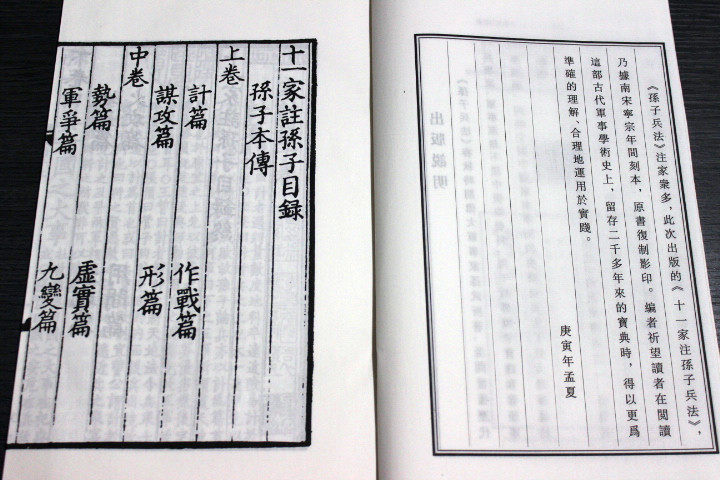 《孫子兵法》注家衆多，此次出版的《十一家注孫子兵法》，
乃據南宋寧宗年間刻本，原書復制影印。编者祈望讀者在閲讀
這部古代軍事學術史上，留存二千多年來的寶典時，得以更爲
準確的理解、合理地運用於實踐。
庚寅年孟夏
十一家註孫子目録
孫子本傳
上卷
計篇 作戰篇
謀攻篇 形篇
中卷
勢篇 虛實篇
軍爭篇 九變篇